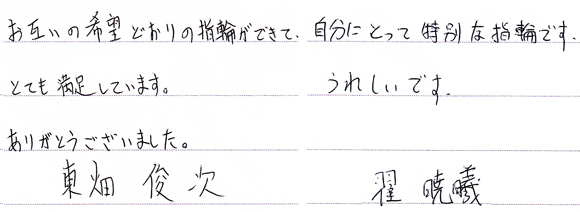 お互いの希望どおりの指輪ができて、
とても満足しています。
ありがとうございました。
東畑 俊次
自分にとって特別な指輪です。
うれしいです。
翟 暁曦